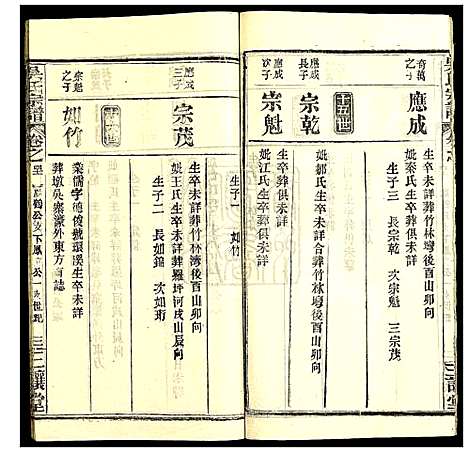 奇萬之子
應成
生卒未詳葬竹林塆後酉山卯向
妣秦氏生卒未詳
生子三 長宗乾 次宗魁 三宗茂
十五世
應成長子
宗乾
妣鄒氏生卒未詳合葬竹林塆後酉山卯向
應成次子
宗魁
生卒葬俱未詳
妣江氏生卒葬俱未詳
應成三子
宗茂
生卒未詳葬竹林灣後酉山卯向
妣王氏生卒未詳葬羅坪河戌山辰向
生子二 長如錦 次如珩
生子一 如竹
十六世
宗魁之子
如竹
業儒字鴻俊號環溪生卒未詳
葬墩吳寨寨外東方有誌
吳氏宗譜
卷之
三讓堂